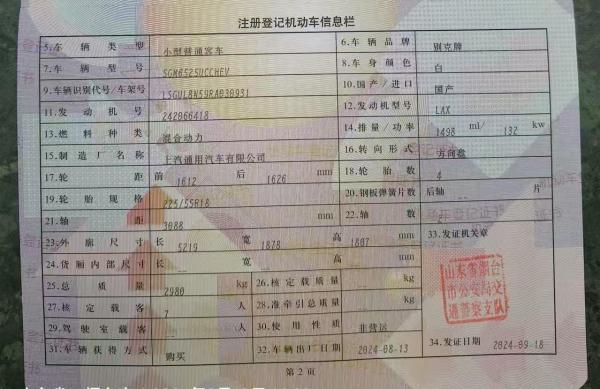 注册登记机动车信息栏
5.车辆类型 小型普通客车 6.车辆品牌 别克牌
7.车辆型号 SGM6525UCCHEV 8.车身颜色 白
9.车辆识别代号/车架号 LSGUL8N59RA030931 10.国产/进口 国产
11.发动机号 242066418 12.发动机型号 LAX
13.燃料种类 混合动力 14.排量/功率 1498 ml/ 132 kw
15.制造厂名称 上汽通用汽车有限公司 16.转向形式 方向盘
17.轮距 前 1612 后 1626 mm 18.轮胎数 4
19.轮胎规格 225/55R18 20.钢板弹簧片数 后轴 片
21.轴距 3088 mm 22.轴数
23.外廓尺寸 长 5219 宽 1878 高 1807 mm 33.发证机关章
24.货厢内部尺寸 长 宽 高 mm
25.总质量 2980 kg 26.核定载质量 kg
27.核定载客 7 人 28.准牵引总质量 kg
29.驾驶室载客 人 30.使用性质 非营运
31.车辆获得方式 购买 32.车辆出厂日期 2024-08-13 34.发证日期 2024-09-18
山东省烟台
市公安局交
通警察支队
第2页